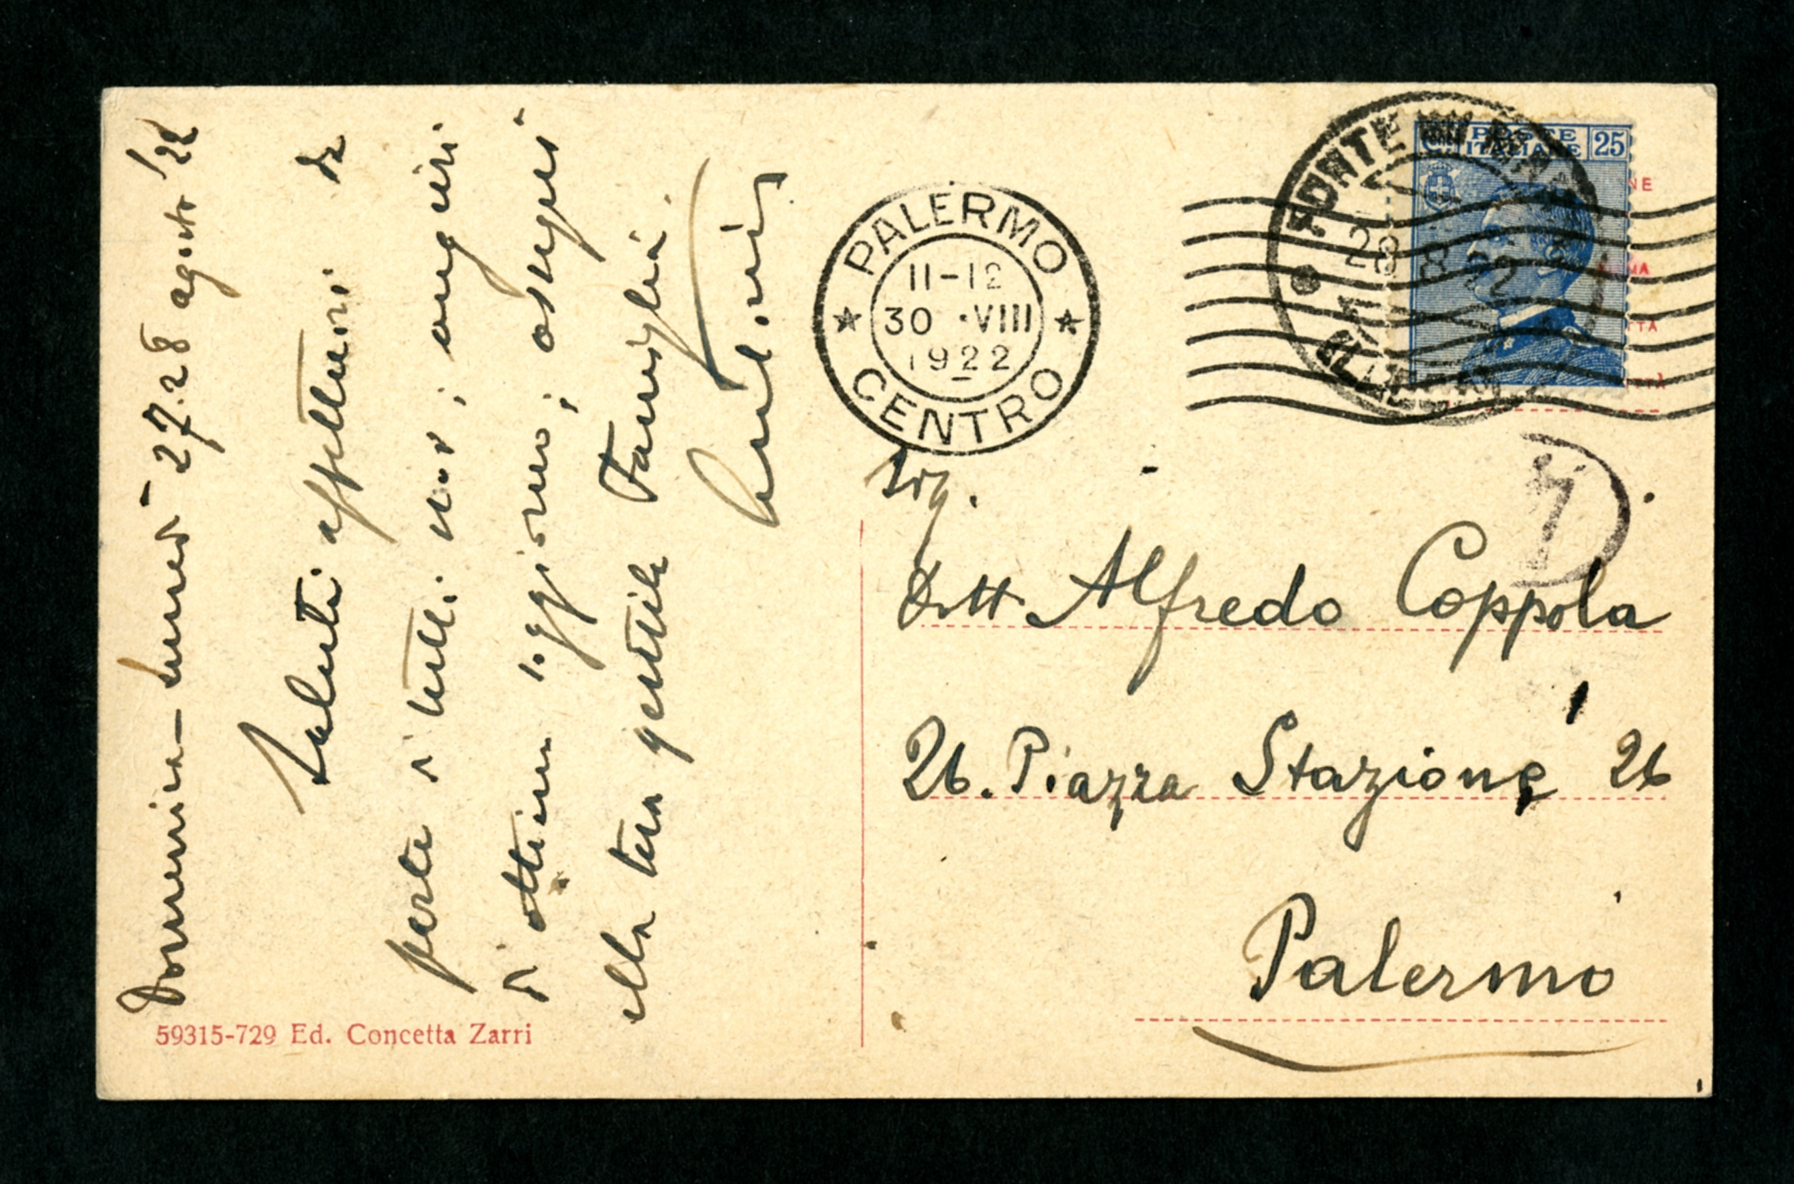 Domenica - lunedì 27-28 agosto '22
Saluti affettuosi da
parte di tutti noi; auguri
di ottimo soggiorno; ossequi
alla tua gentile Famiglia.
PALERMO
11-12
30 · VIII
1922
CENTRO
POSTE
ITALIANE
25
28 8 22
Sig.
Dott Alfredo Coppola
26. Piazza Stazione 26
Palermo
59315-729 Ed. Concetta Zarri